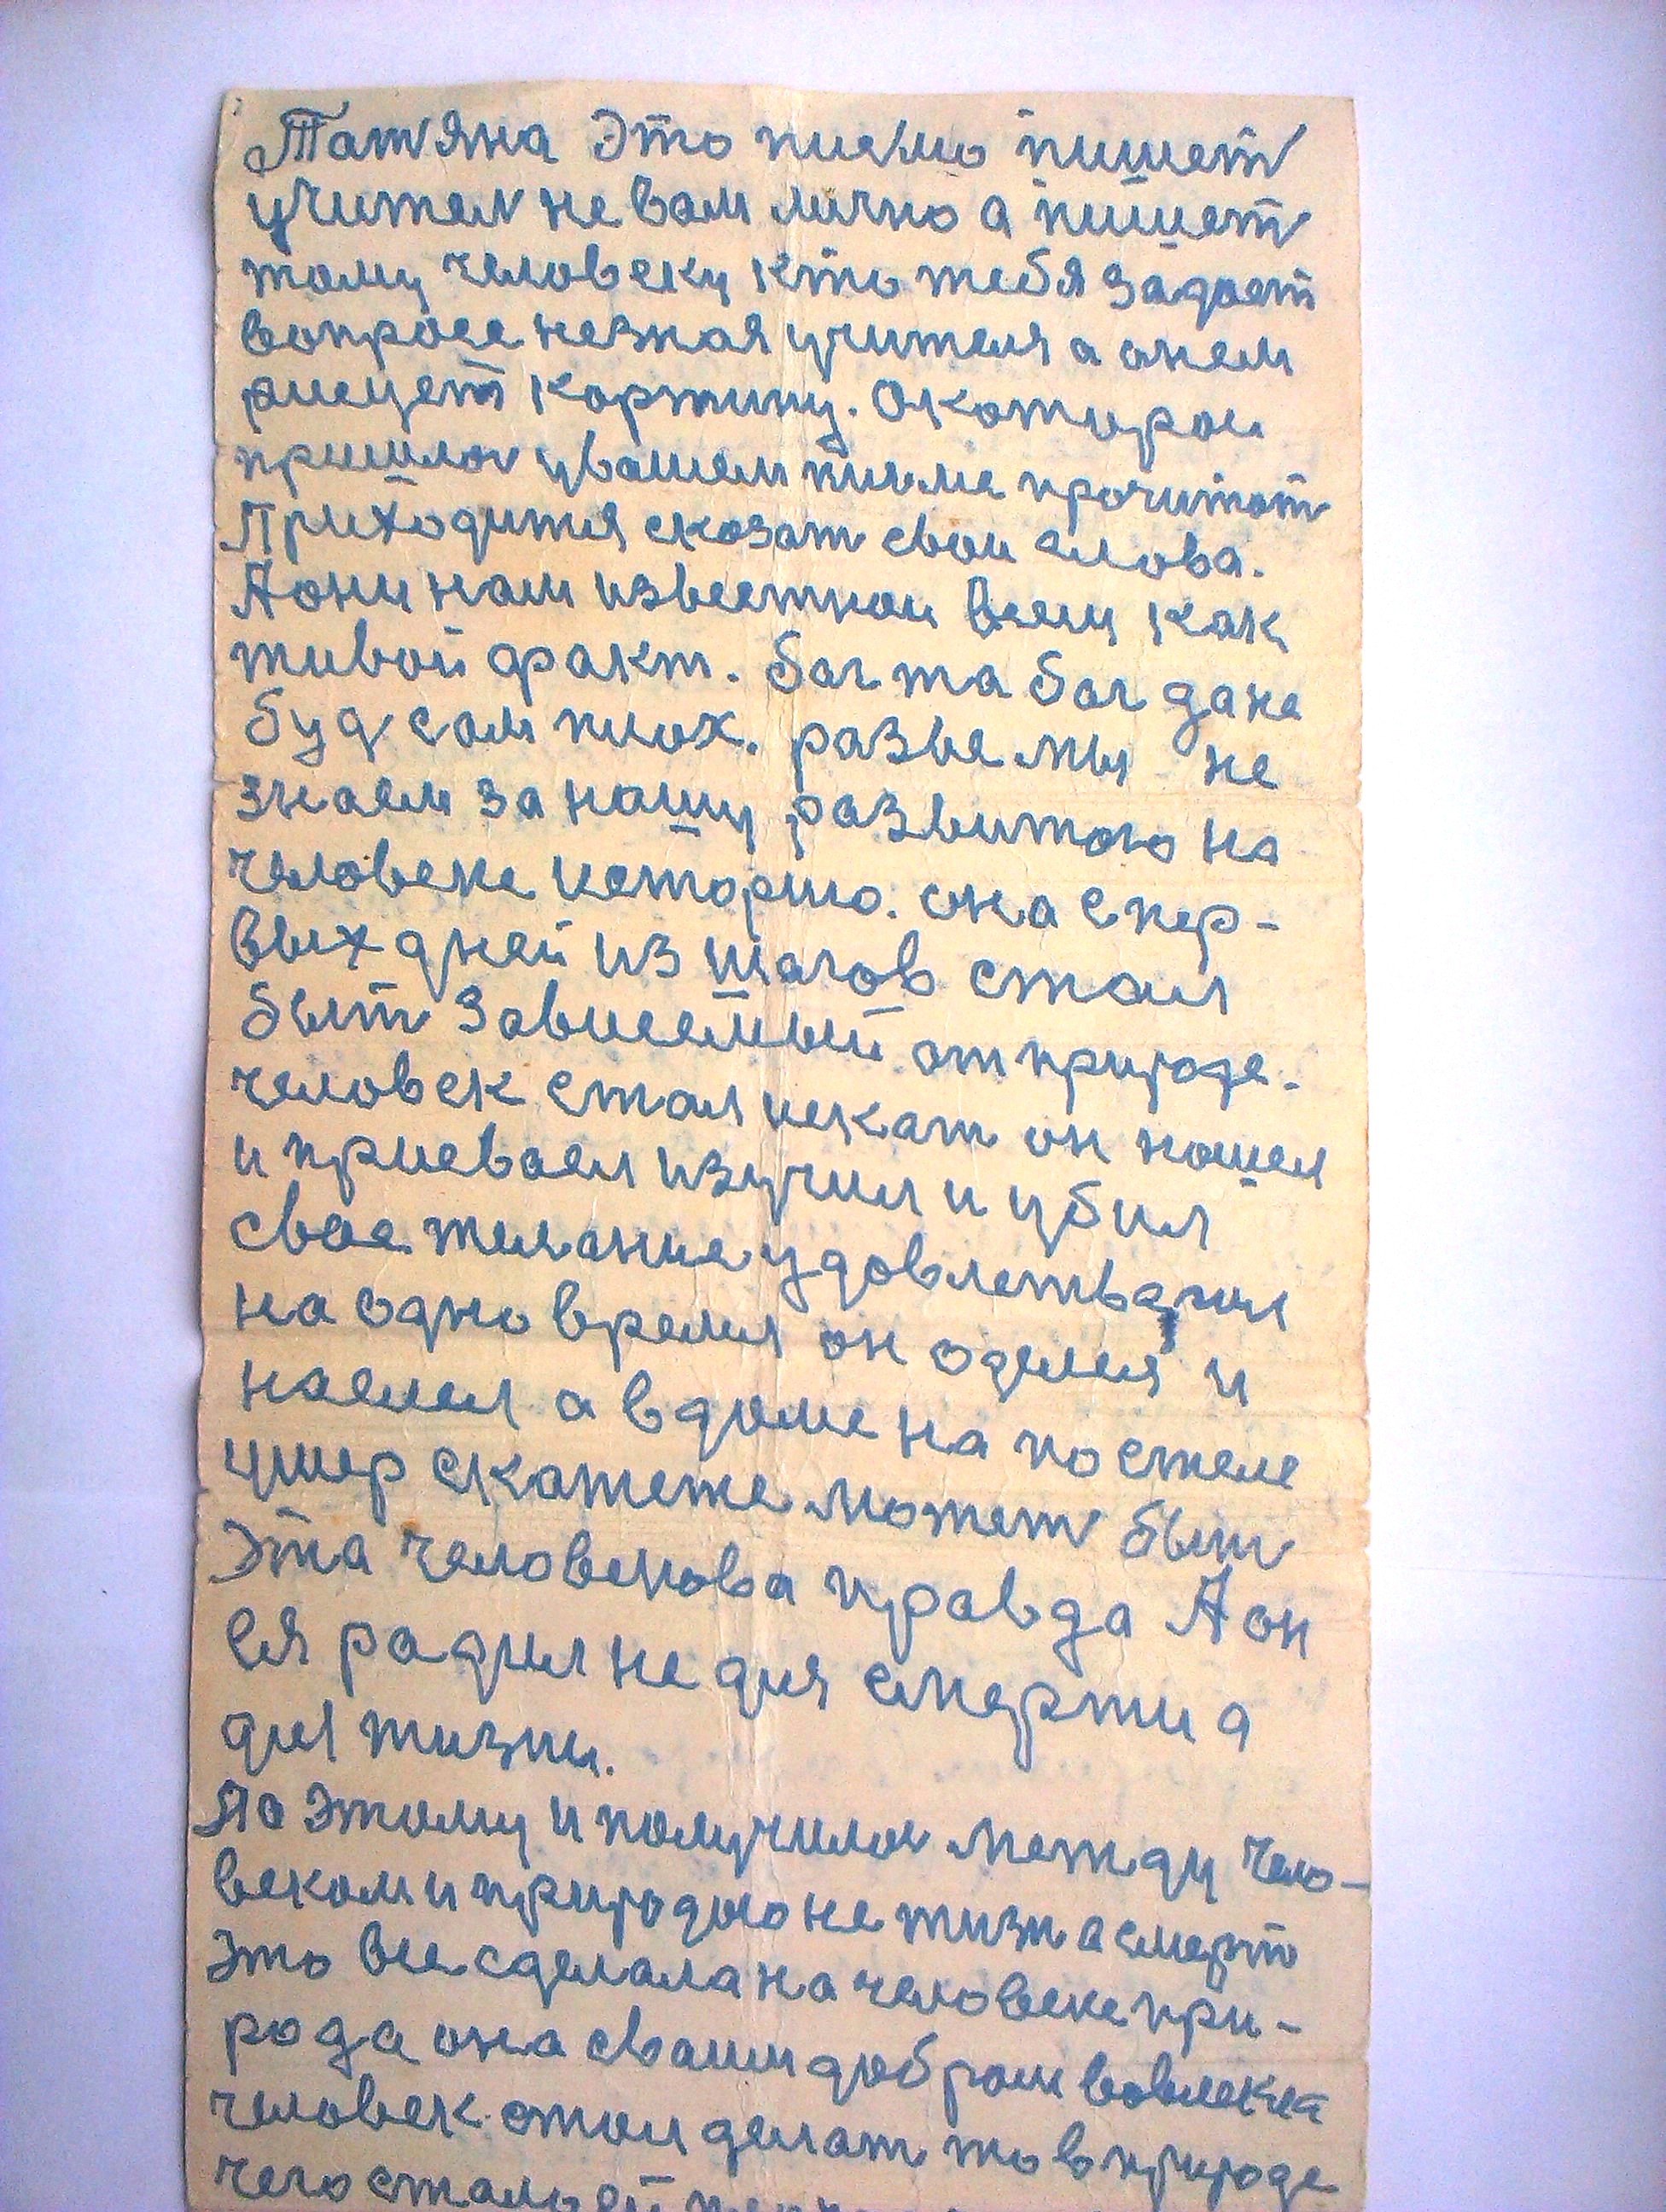 Татяна Это писмо пишет
учител не вам лично а пишет
тому человеку кто тебя задает
вопросе незная учителя а онем
рисует картину. Окотирои
пришлос увашем писме прочитат
Приходится сказат свои слова.
А они нам известнои всем как
живой факт. бог та бог да не
буд сам плох. разве мы не
знаем за нашу развитою на
человеке историю. она спер-
вых дней из шагов стал
быт зависемый от природе.
человек стал искат он нашел
и присвоел изучил и убил
свое желание удовлетварил
на одно время он оделся и
наелся а в доме на постеле
умер скажеже может быт
Эта человекова правда А он
ся радил не для смерти а
для жизни.
По этому и получилос между чело-
веком и природою не жизн а смерт
Это все сделала на человеке при-
рода она сваим добром вовлекла
человек стал делат то в природе
чего стало ей